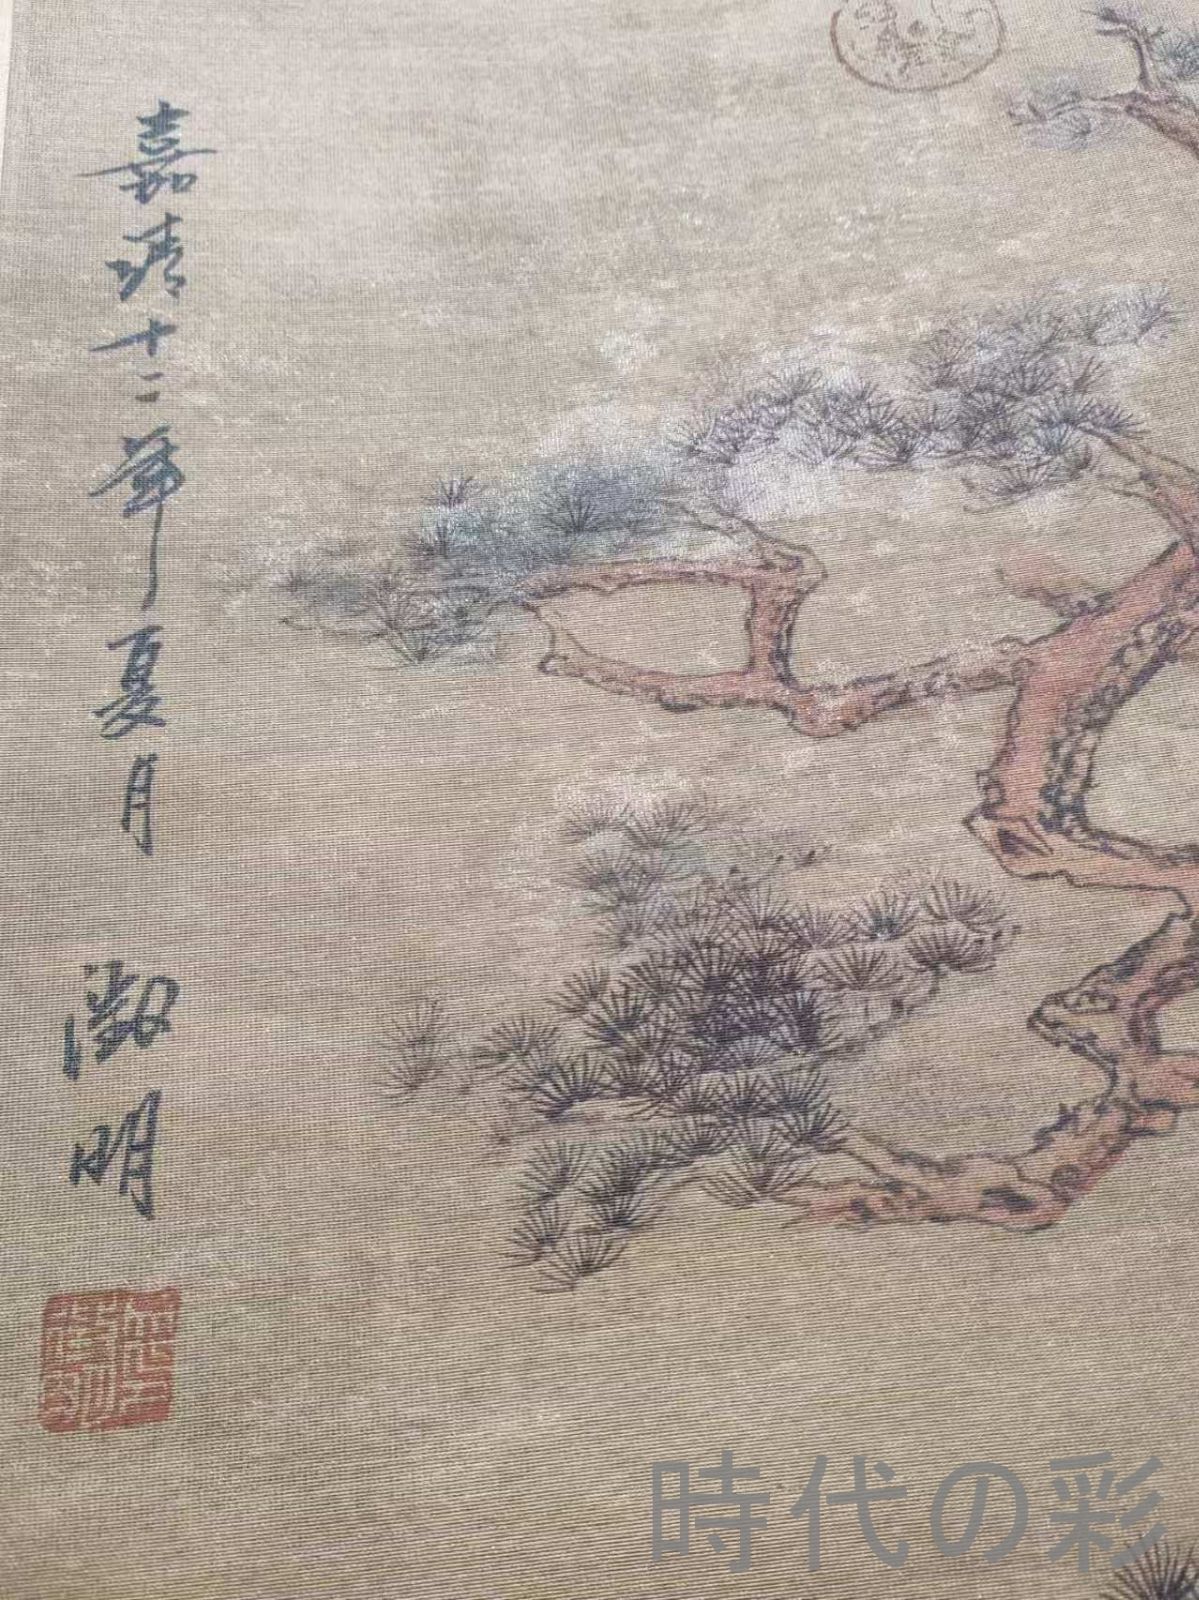 嘉靖十二年夏月
徵明
時代の彩